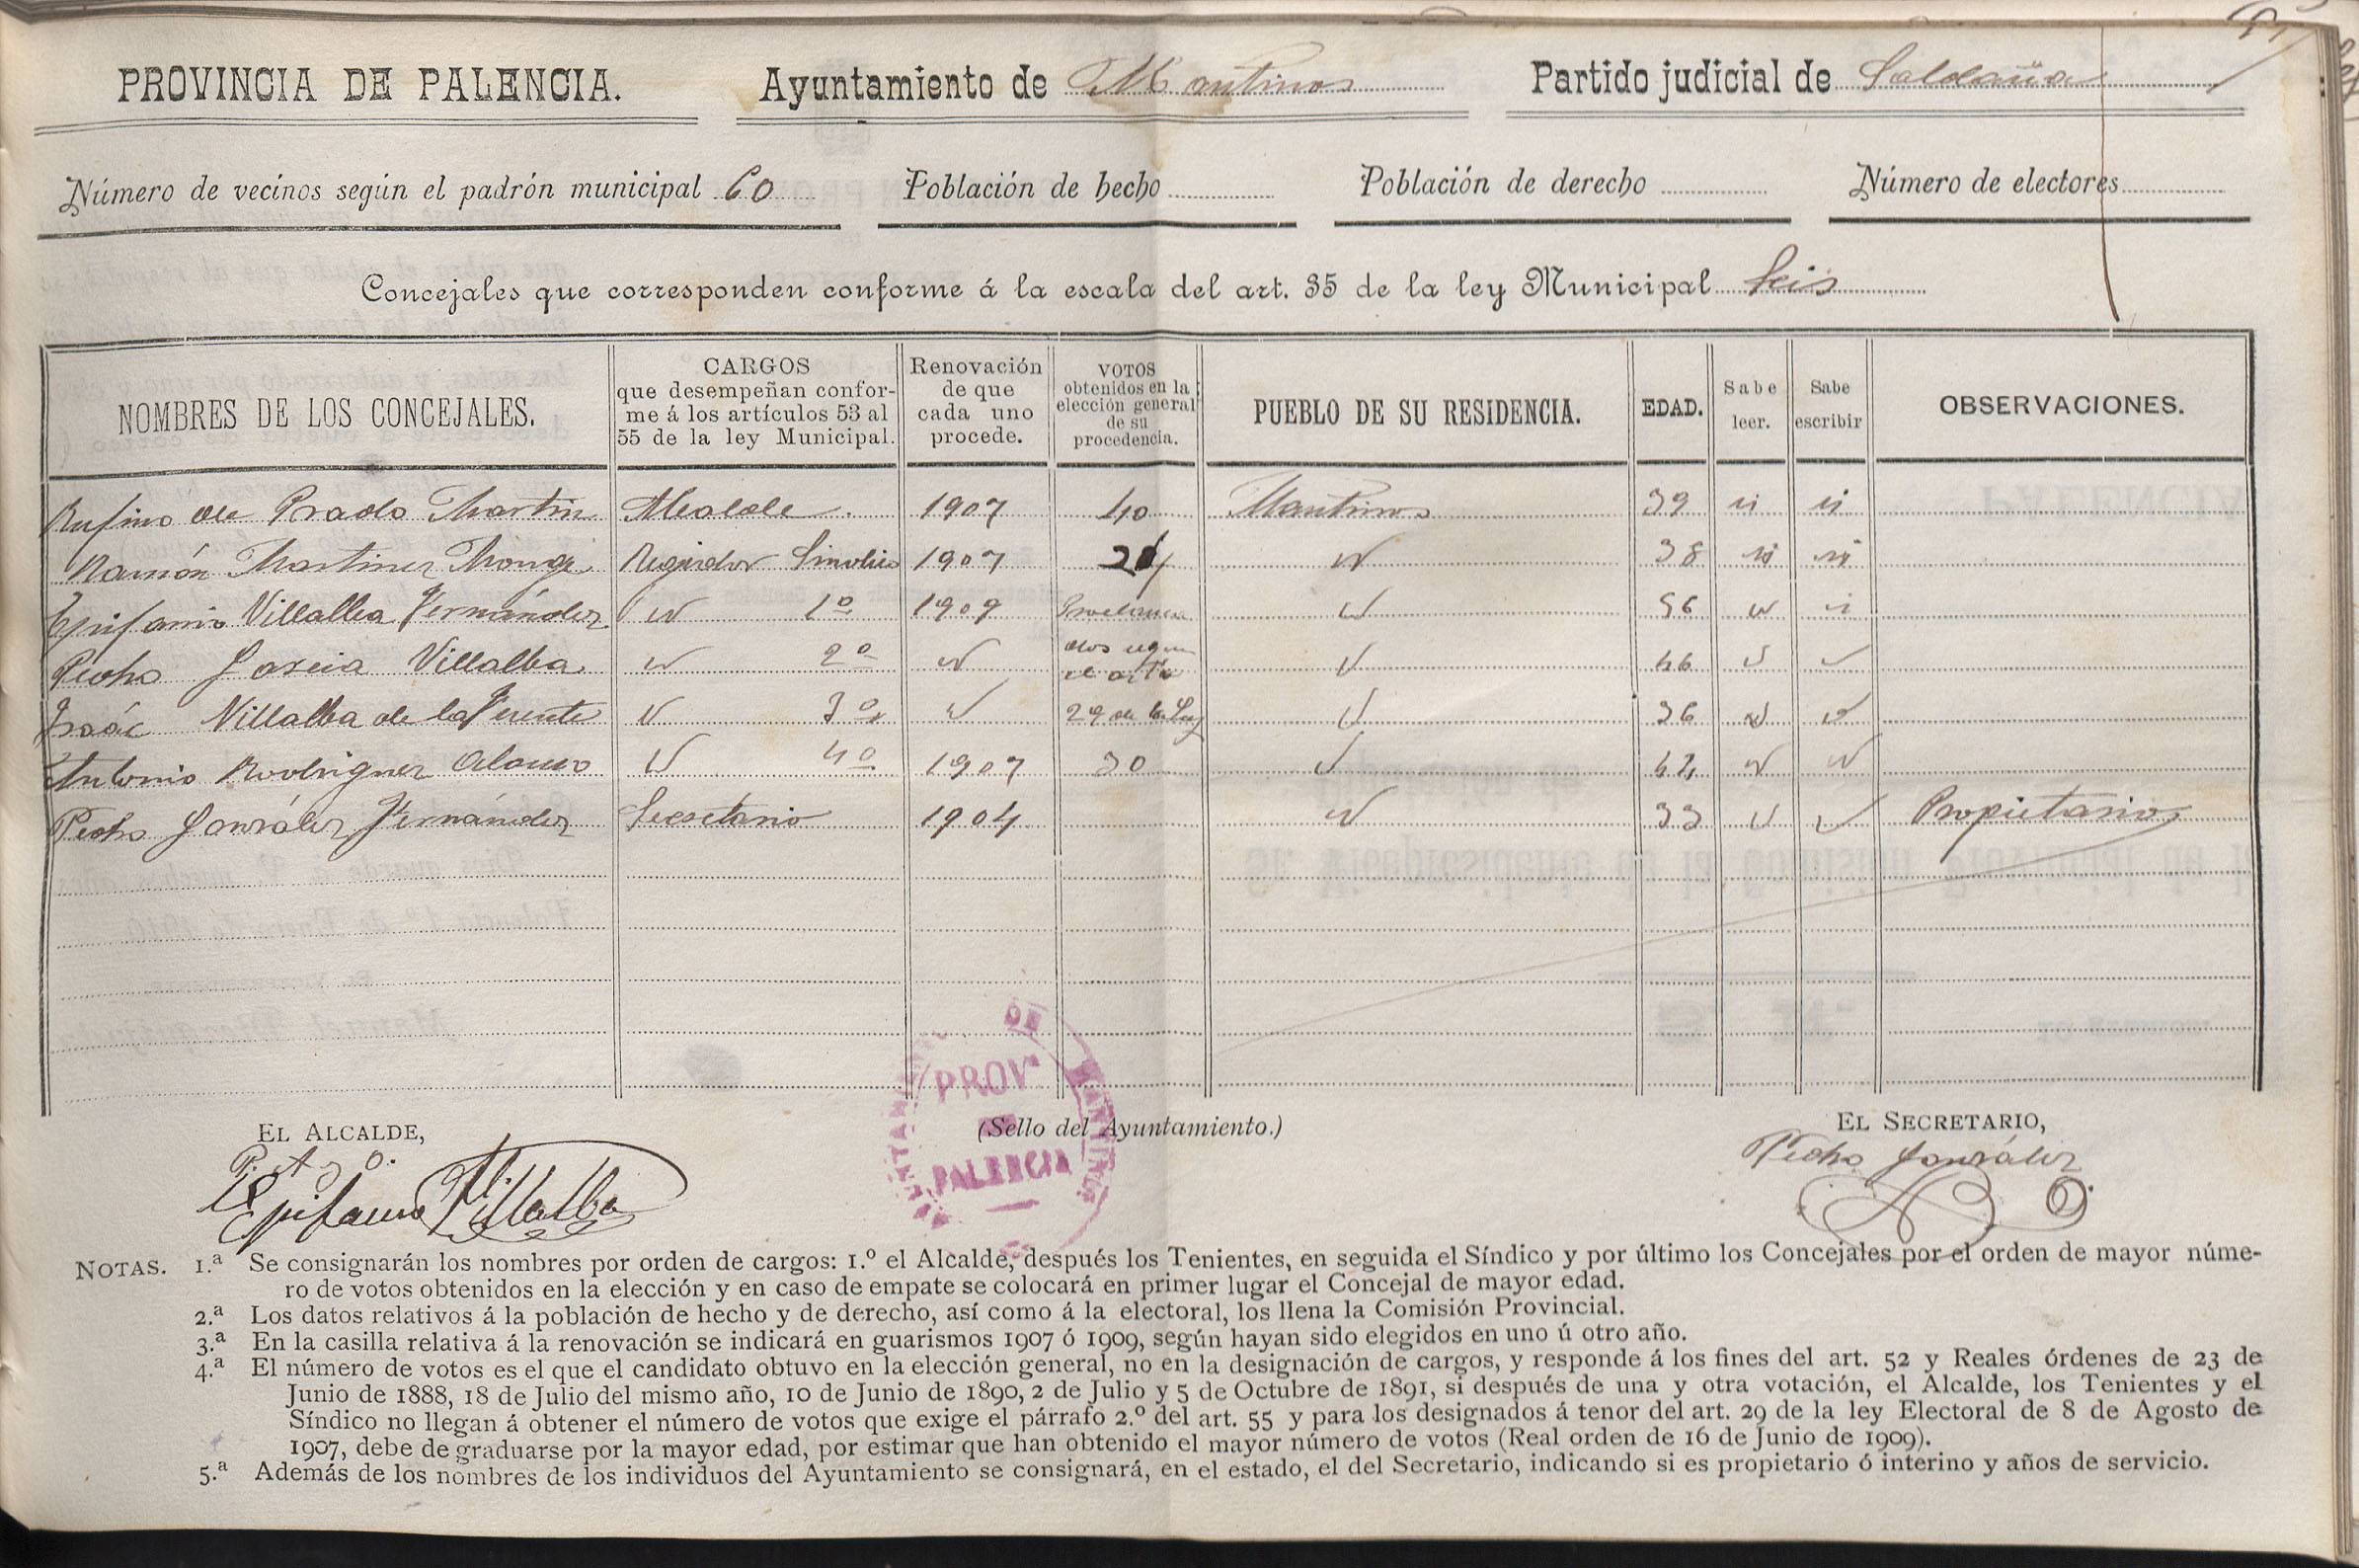 PROVINCIA DE PALENCIA. Ayuntamiento de Mantinos Partido judicial de Saldaña
Número de vecinos según el padrón municipal 60 Población de hecho Población de derecho Número de electores
Concejales que corresponden conforme á la escala del art. 35 de la ley Municipal Seis
NOMBRES DE LOS CONCEJALES. CARGOS que desempeñan conforme á los artículos 53 al 55 de la ley Municipal. Renovación de que cada uno procede. VOTOS obtenidos en la elección general de su procedencia. PUEBLO DE SU RESIDENCIA. EDAD. Sabe leer. Sabe escribir OBSERVACIONES.
Rufino de Prado Martin Alcalde. 1907 40 Mantinos 39 si si
Ramón Martinez Monge Regidor Sindico 1907 38 si si
Epifanio Villalba Fernández 1º 1909 Proclama 56 si
Pedro Garcia Villalba 2º dos segun el artº 46
Isaác Villalba de la Fuente 3º 29 de la Ley 36
Antonio Rodriguez Alonso 4º 1907 30
Pedro González Fernández Secretario 1904 33 Propietario
EL ALCALDE, (Sello del Ayuntamiento.) EL SECRETARIO,
PROV.
DE
PALENCIA
Epifanio Villalba Pedro González
NOTAS. 1.ª Se consignarán los nombres por orden de cargos: 1.º el Alcalde, después los Tenientes, en seguida el Síndico y por último los Concejales por el orden de mayor núme-
ro de votos obtenidos en la elección y en caso de empate se colocará en primer lugar el Concejal de mayor edad.
2.ª Los datos relativos á la población de hecho y de derecho, así como á la electoral, los llena la Comisión Provincial.
3.ª En la casilla relativa á la renovación se indicará en guarismos 1907 ó 1909, según hayan sido elegidos en uno ú otro año.
4.ª El número de votos es el que el candidato obtuvo en la elección general, no en la designación de cargos, y responde á los fines del art. 52 y Reales órdenes de 23 de
Junio de 1888, 18 de Julio del mismo año, 10 de Junio de 1890, 2 de Julio y 5 de Octubre de 1891, si después de una y otra votación, el Alcalde, los Tenientes y el
Síndico no llegan á obtener el número de votos que exige el párrafo 2.º del art. 55 y para los designados á tenor del art. 29 de la ley Electoral de 8 de Agosto de
1907, debe de graduarse por la mayor edad, por estimar que han obtenido el mayor número de votos (Real orden de 16 de Junio de 1909).
5.ª Además de los nombres de los individuos del Ayuntamiento se consignará, en el estado, el del Secretario, indicando si es propietario ó interino y años de servicio.